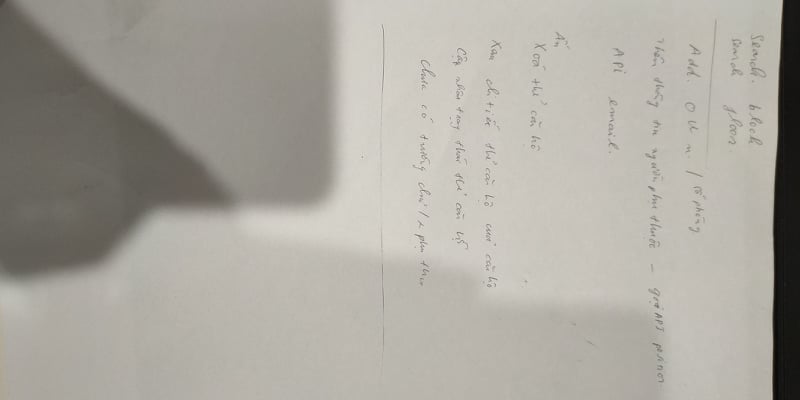 Search. block
Search floor.
Add. / số phòng
thông tin người phụ thuộc - gọi API position
API email.
Ấn
Xoá thẻ căn hộ
Xem chi tiết thẻ căn hộ của căn hộ
Cập nhật trạng thái thẻ căn hộ
chưa có trường chủ /